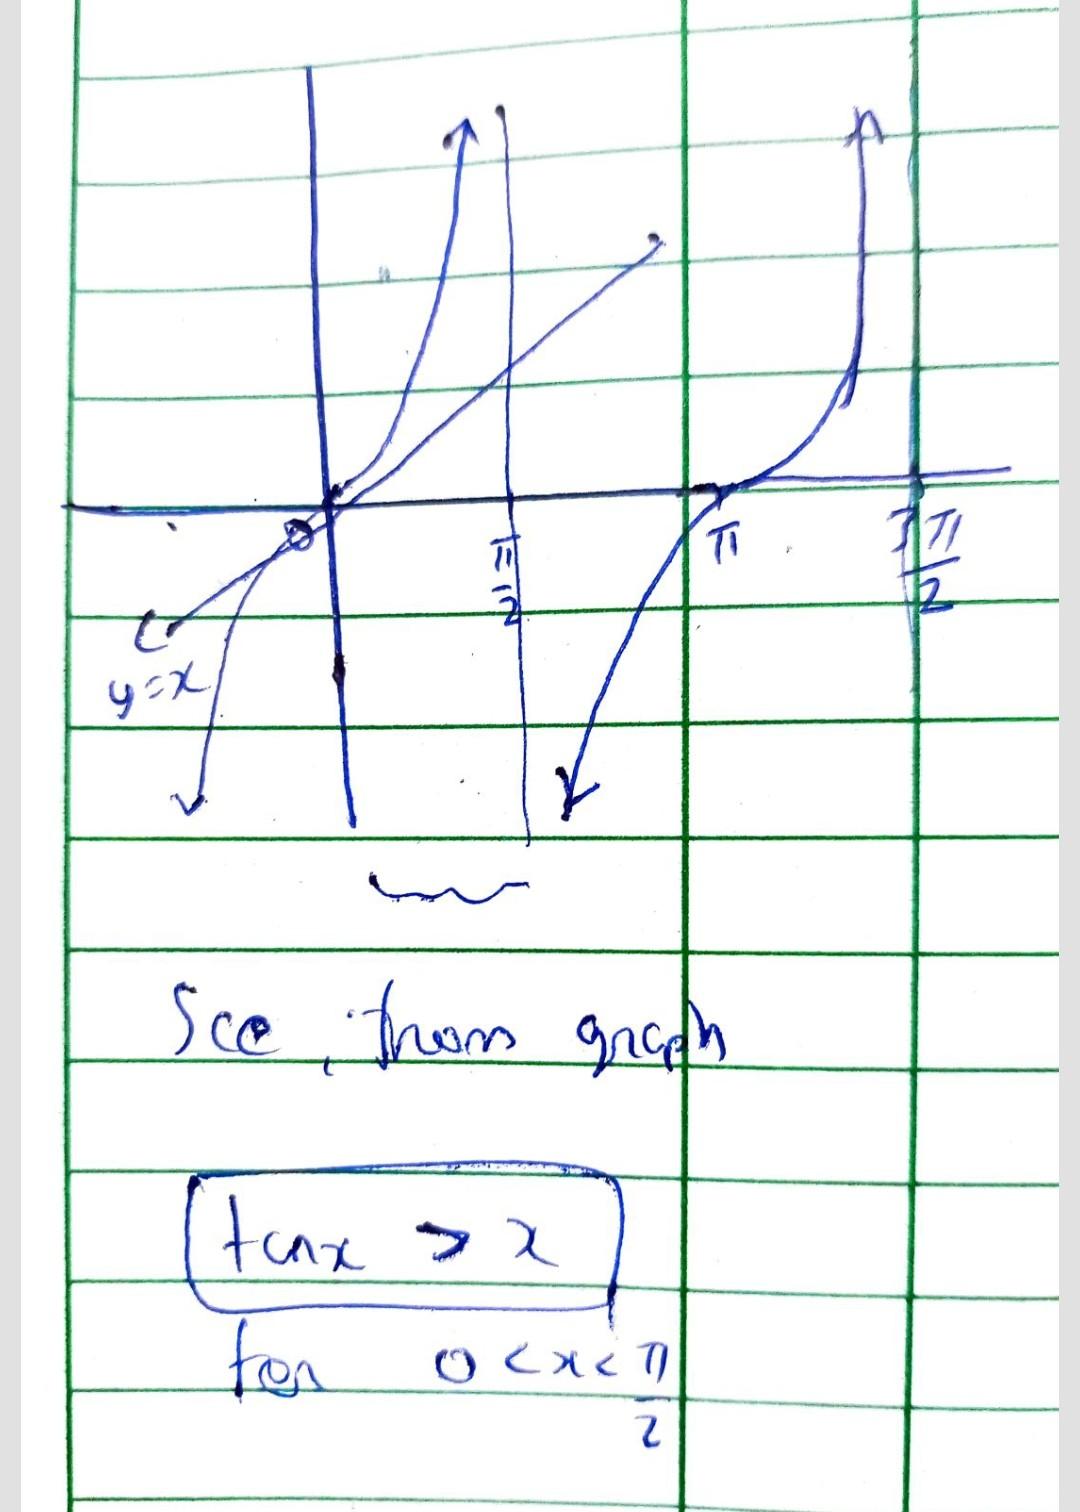 π/2
π
3π/2
y=x
See, from graph
tanx > x
for 0 < x < π/2